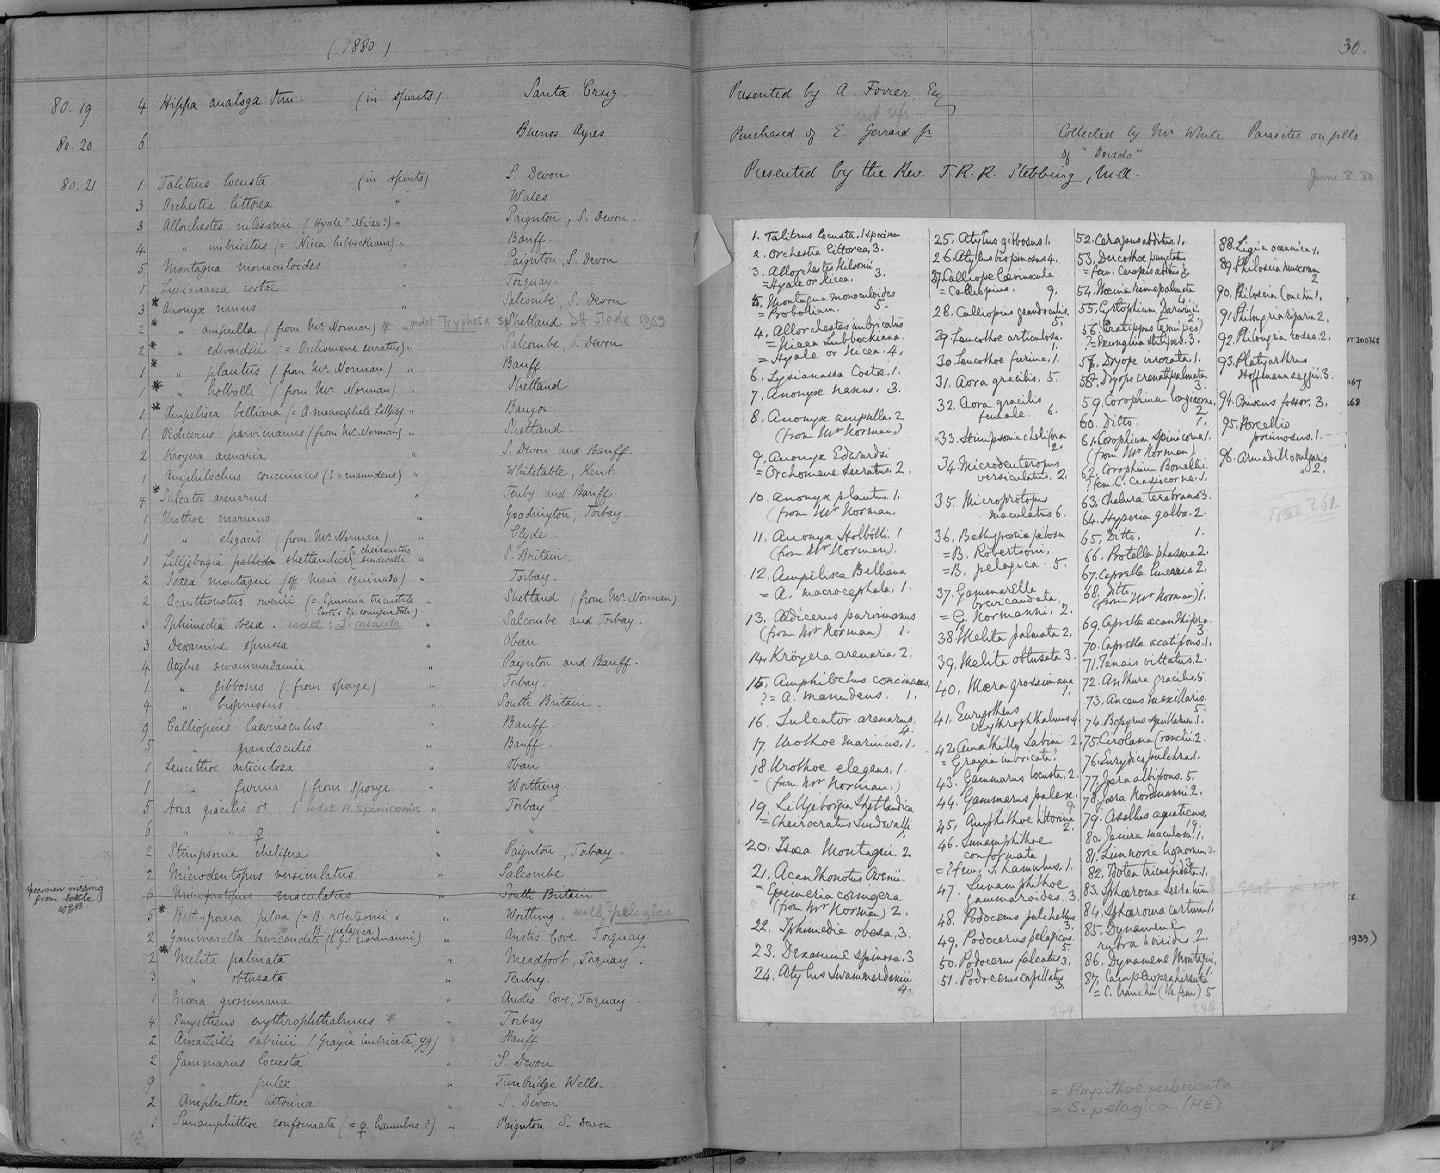 (1880)
80.19 4 Hippa analoga Stm. (in spirits) Santa Cruz.
80.20 6 Buenos Ayres
80.21 1 Talitrus locusta (in spirits) S. Devon
3 Orchestia littorea " Wales
3 Allorchestes nilssonii (Hyale? Nicea?) " Paignton, S. Devon.
4 " imbricatus (= Nicea Lubbockiana) " Banff.
5 Montagua monoculoides " Paignton, S. Devon
1 Lysianassa costae " Torquay.
3 Anonyx nanus " Salcombe, S. Devon
2 " ampulla (from Mr Norman) " Shetland DH Slade 1969
2 " edwardsii (= Orchomene serratus) " Salcombe, S. Devon
1 " plautus (from Mr Norman) " Banff
1 " holbolli (from Mr Norman) Shetland
1 Ampelisca belliana (= A. macrocephala Lilljeb) " Bangor.
1 Oedicerus parvimanus (from Mr Norman) " Shetland.
2 Kroyera arenaria " S. Devon and Banff.
1 Amphilochus concinnus (? = manudens) " Whitstable, Kent.
4 Sulcator arenarius " Tenby and Banff.
1 Urothoe marinus " Goodrington, Torbay.
1 " elegans (from Mr Norman) " Clyde.
1 Lilljeborgia pallida shetlandica (= cheirocratus sundwalli " S. Britain.
2 Isaea montagui (off Maia squinado) " Torbay.
2 Acanthonotus owenii (= Epimeria tricristata Costa & Ep. cornigera Fabr.) " Shetland (from Mr Norman)
3 Iphimedia obesa. redet: I. minuta " Salcombe and Torbay.
3 Dexamine spinosa " Oban
4 Atylus swammerdamii " Paynton and Banff.
1 " gibbosus (from sponge) " Torbay.
4 " bispinosus " South Britain.
9 Calliopius laevisculus " Banff.
5 " grandoculis " Banff.
1 Leucothoe articulosa " Oban
1 " furina (from sponge " Worthing.
5 Aora gracilis ♂ " Torbay
6 " " ♀ " "
2 Stimpsonia chelifera " Paynton, Torbay.
2 Microdeutopus versiculatus " Salcombe
specimen missing from bottle
6 Microprotopus maculatus South Britain
5 Bathyporeia pilosa (= B. robertsonii & B. pelagica) " Worthing. pelagica
2 Gammarella brevicaudata (& G. normannii) " Anstis Cove Torquay
2 Melita palmata " Meadfoot, Torquay.
3 " obtusata " Tenby.
1 Moera grossimana " Anstis Cove, Torquay.
4 Eurystheus erythrophthalmus " Torbay
2 Amathilla sabinii (Grayia imbricata, yg) " Banff
2 Gammarus locusta " S. Devon
9 " pulex " Tunbridge Wells.
2 Amphithoe littorina " S. Devon
1 Sunamphithoe conformata (= ♀ hamulus?) " Paignton S. Devon
30.
Presented by A. Forrer, Esq
Purchased of E. Gerrard Jr Collected by Mr White Parasites on gills
of "Dorado"
Presented by the Rev. T.R.R. Stebbing, M.A. June 8. 80
1. Talitrus locusta. 1 specimen
2. Orchestia littorea. 3.
3. Allorchestes Nilsonii
= Hyale or Nicea. 3.
5. Montagua monoculoides
= Probolium. 5
4. Allorchestes imbricatus
= Nicea Lubbockiana.
= Hyale or Nicea. 4.
6. Lysianassa Costae. 1.
7. Anonyx nanus. 3.
8. Anonyx ampulla. 2
(from Mr Norman)
9. Anonyx Edwardsi
= Orchomene serratus. 2.
10. Anonyx plautus. 1.
(from Mr Norman
11. Anonyx Holbolli. 1
(from Mr Norman).
12. Ampelisca Belliana
= A. macrocephala. 1.
13. Œdicerus parvimanus
(from Mr Norman) 1.
14. Kröyera arenaria. 2.
15. Amphilochus concinnus.
? = A. manudens. 1.
16. Sulcator arenarius.
4.
17. Urothoe marinus. 1.
18. Urothoe elegans. 1.
(from Mr Norman.)
19. Lilljeborgia Shetlandica
= Cheirocratus Sundwalli
20. Isaea Montagui. 2
21. Acanthonotus Owenii.
= Epimeria cornigera
(from Mr Norman) 2.
22. Iphimedia obesa. 3.
23. Dexamine spinosa. 3
24. Atylus Swammerdamii
4.
25. Atylus gibbosus 1.
26. Atylus bispinosus 4.
27. Calliope Laeviuscula
= Calliopius. 9.
28. Calliopius grandoculis.
5.
29. Leucothoe articulosa.
1.
30. Leucothoe furina. 1.
31. Aora gracilis. 5.
32. Aora gracilis
female. 6.
33. Stimpsonia chelifera
2.
34. Microdeuteropus
versiculatus. 2.
35. Microprotopus
maculatus 6.
36. Bathyporeia pilosa
= B. Robertsoni,
= B. pelagica. 5.
37. Gammarella
brevicaudata
= G. Normanni. 2.
38. Melita palmata 2.
39. Melita obtusata 3.
40. Mœra grossimana
1.
41. Eurystheus
erythrophthalmus 4.
42. Amathilla Sabini 2.
= Grayia imbricata?
43. Gammarus locusta. 2.
44. Gammarus pulex.
9.
45. Amphithoe littorina
2.
46. Sunamphithoe
conformata
= ? fem. S. hamulus. 1.
47. Sunamphithoe
gammaroides. 3.
48. Podocerus pulchellus
3.
49. Podocerus pelagicus.
5.
50. Podocerus falcatus 3.
51. Podocerus capillatus
3.
52. Cerapus abditus. 1.
53. Dercothoe punctatus
= fem. Cerapus abditus 2.
54. Nænia rimapalmata
4.
55. Cyrtophium Darwinii
2.
56. Cratippus tenuipes
? = Veuugua stilipes. 3.
57. Dryope irrorata. 1.
58. Dryope crenatipalmata
3.
59. Corophium longicorne.
2
60. Ditto. 1.
61. Corophium spinicorne 1.
(from Mr Norman)
62. Corophium Bonellii
? fem. C. crassicorne. 1.
63. Chelura terebrans 3.
64. Hyperia galba. 2.
65. Ditto. 1.
66. Protella phasma 2.
67. Caprella linearis 2.
68. Ditto.
(from Mr Norman) 1.
69. Caprella acanthifera.
3.
70. Caprella acutifrons. 1.
71. Tanais vittatus. 2.
72. Anthura gracilis. 5.
73. Anceus maxillaris.
5.
74. Bopyrus squillarum. 1.
75. Cirolana Cranchii. 2.
76. Eurydice pulchra. 1.
77. Jæra albifrons. 5.
78. Jæra Nordmanni 2.
79. Asellus aquaticus.
19.
80. Janira maculosa 1.
81. Limnoria lignorum 3.
82. Idotea tricuspidata. 1.
83. Sphæroma serratum
84. Sphæroma curtum 1.
85. Dynamene
rubra & viridis. 2.
86. Dynamene Montagui.
87. Campecopea hirsuta
= C. Cranchii (the fem) 5
88. Ligia oceanica 1.
89. Philoscia muscorum
2
90. Philoscia Couchii 1.
91. Philougria riparia 2.
92. Philougria rosea. 2.
93. Platyarthrus
Hoffmannseggii. 3.
94. Oniscus fossor. 3.
95. Porcellio
pruinosus. 1.
96. Armadillo vulgaris
2.
Total 262
1939)
= Ampithoe rubricata
= S. pelagica (ME)